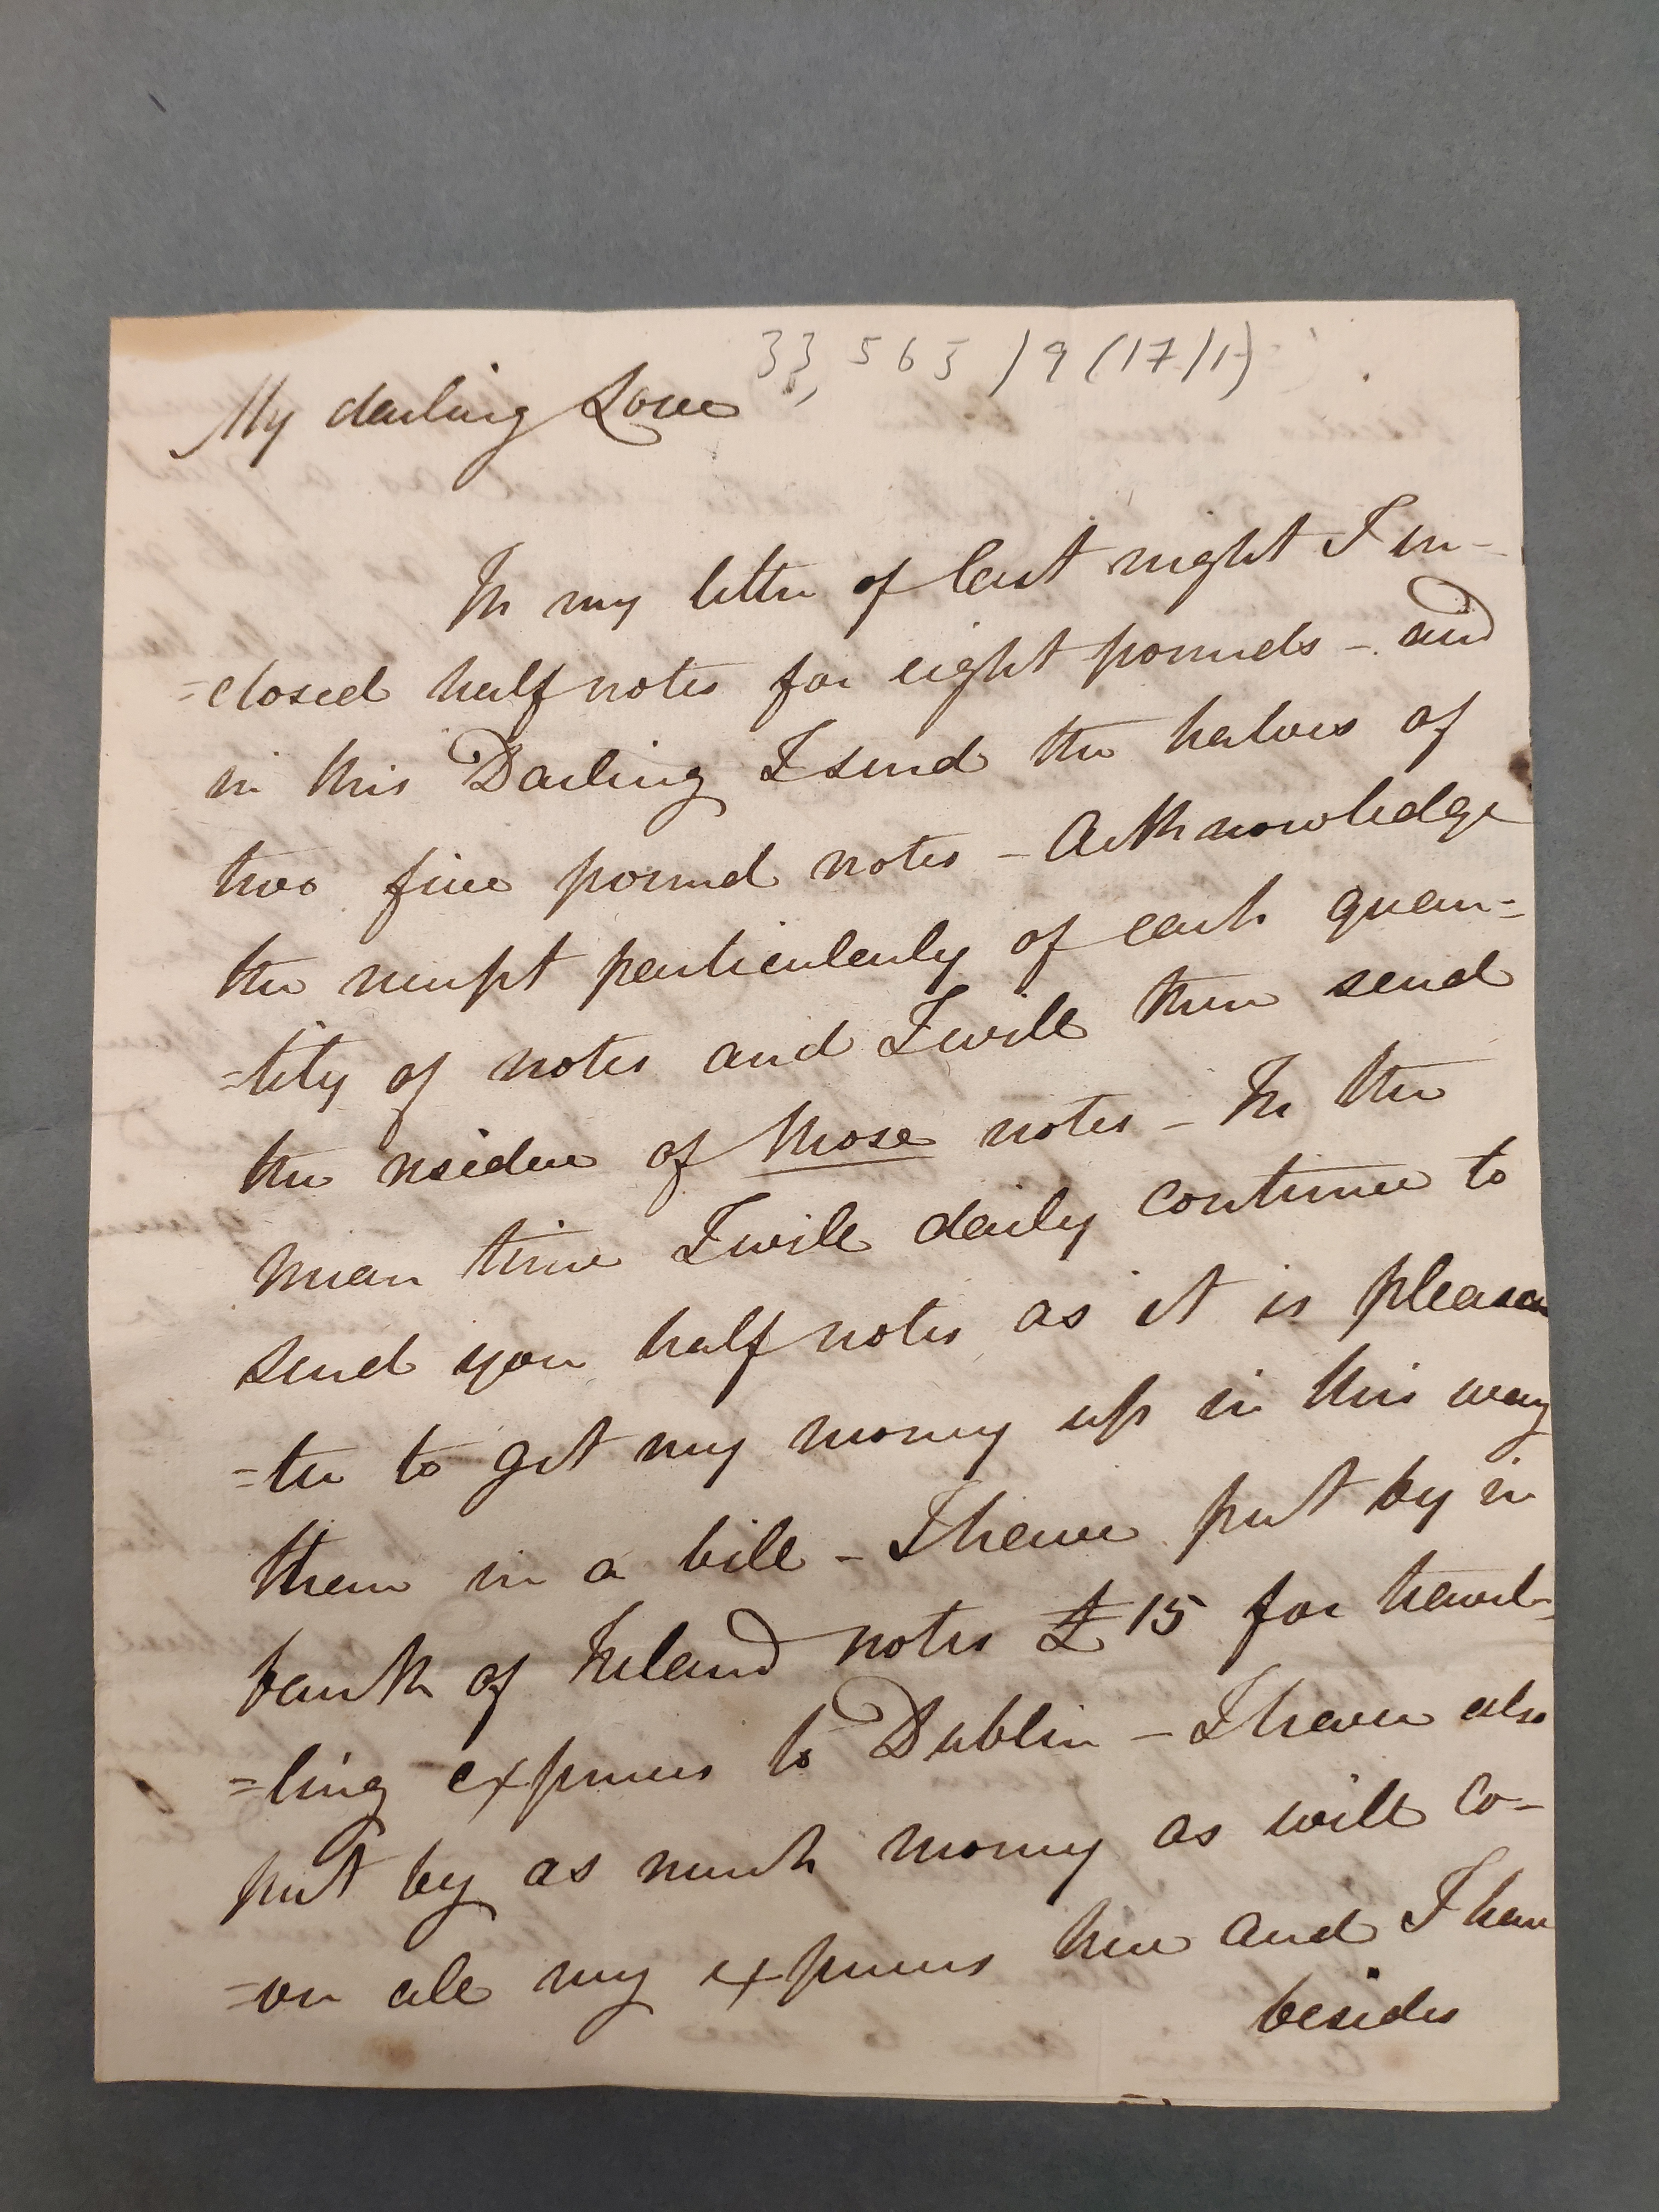 33,565/9(17/1)
My darling Love
In my letter of last night I in-
=closed half notes for eight pounds - and
in this Darling I send the halves of
two five pound notes - Acknowledge
the receipt particularly of each quan=
=tity of notes and I will then send
the residue of those notes - In the
mean time I will daily continue to
send you half notes as it is pleasan
=ter to get my money up in this way
than in a bill - I have put by in
bank of Ireland notes £15 for travel-
=ling expenses to Dublin - I have also
put by as much money as will co-
=ver all my expenses here and I have
besides